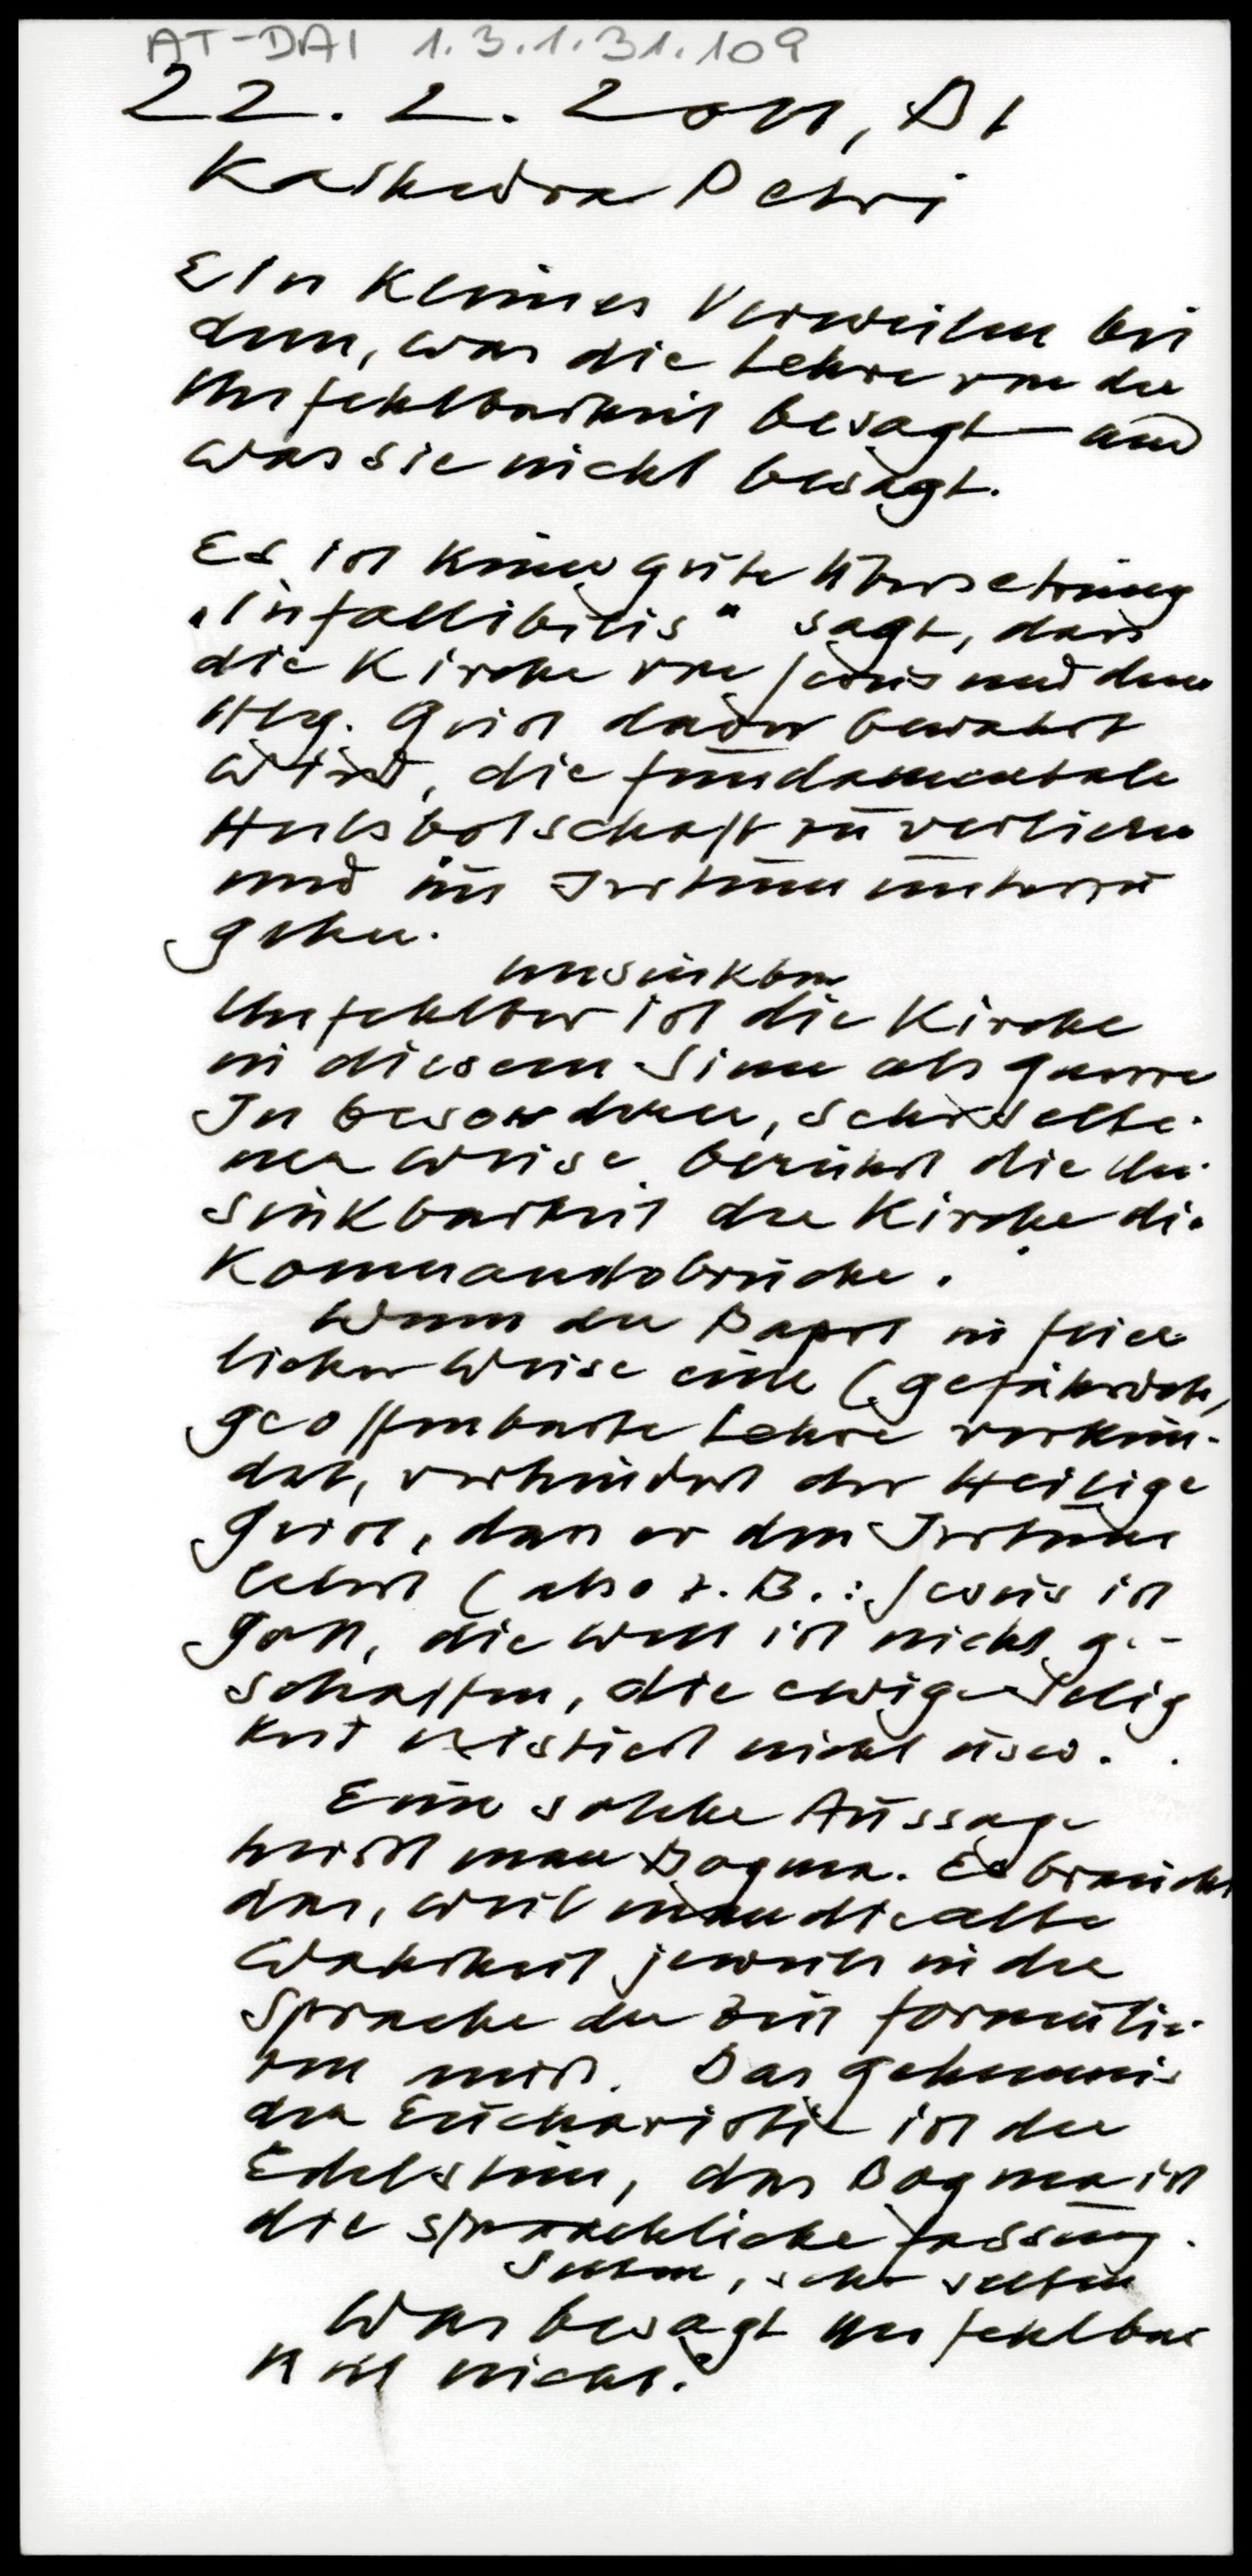 AT-DAI 1.3.1.31.109
22. 2. 2011, Bt
Kathedra Petri
Ein kleines Verweilen bei
dem, was die Lehre von der
Unfehlbarkeit besagt – und
was sie nicht besagt.
Es ist keine gute Übersetzung
„Infallibilis" sagt, dass
die Kirche von Jesus und dem
Hlg. Geist davor bewahrt
wird, die fundamentale
Heilsbotschaft zu verlieren
und im Irrtum unterzu
gehen.
unsinkbar
Unfehlbar ist die Kirche
in diesem Sinne als ganze
In besonderer, sehr selte-
ner Weise berührt die Un-
sinkbarkeit der Kirche die
Kommandobrücke.
Wenn der Papst in feier
licher Weise eine (gefährdete,
geoffenbarte Lehre verkün-
det, verhindert der Heilige
Geist, dass er den Irrtum
lehrt (also z. B.: Jesus ist
Gott, die Welt ist nicht ge-
schaffen, die ewige Selig
keit existiert nicht usw.
Eine solche Aussage
heißt man Dogma. Es braucht
das, weil man die alte
Wahrheit jeweils in der
Sprache der Zeit formulie-
ren muß. Das Geheimnis
der Eucharistie ist der
Edelstein, das Dogma ist
die sprachliche Fassung.
Selten, sehr selten
Was besagt Unfehlbar
keit nicht?